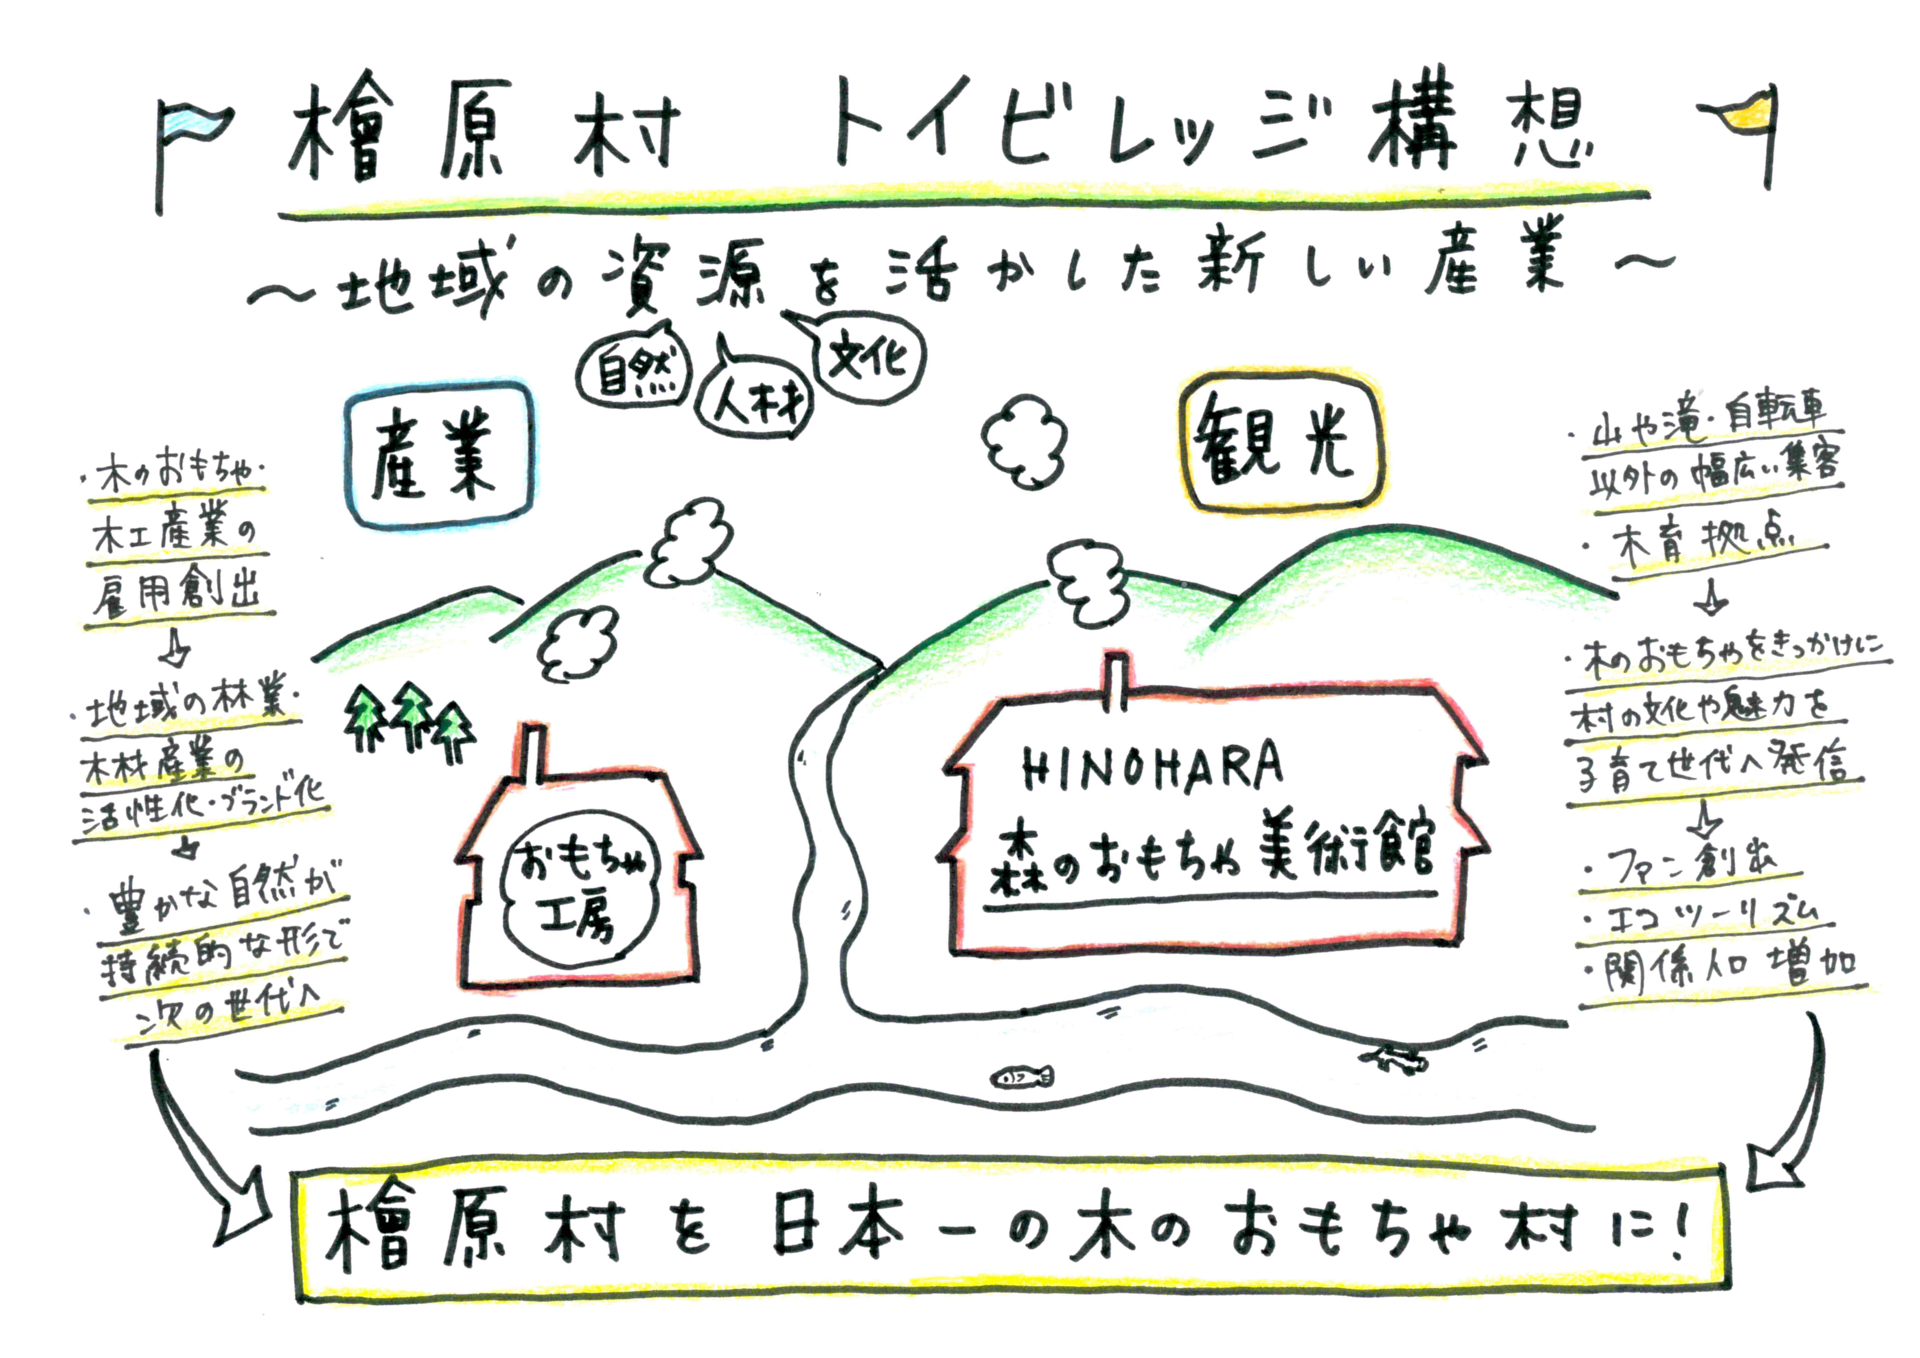 檜原村 トイビレッジ構想
～地域の資源を活かした新しい産業～
自然
人材
文化
産業
観光
・木のおもちゃ・
木工産業の
雇用創出
・地域の林業・
木材産業の
活性化・ブランド化
・豊かな自然が
持続的な形で
次の世代へ
おもちゃ
工房
HINOHARA
森のおもちゃ美術館
・山や滝・自転車
以外の幅広い集客
・木育拠点
・木のおもちゃをきっかけに
村の文化や魅力を
子育て世代へ発信
・ファン創出
・エコツーリズム
・関係人口増加
檜原村を日本一の木のおもちゃ村に!